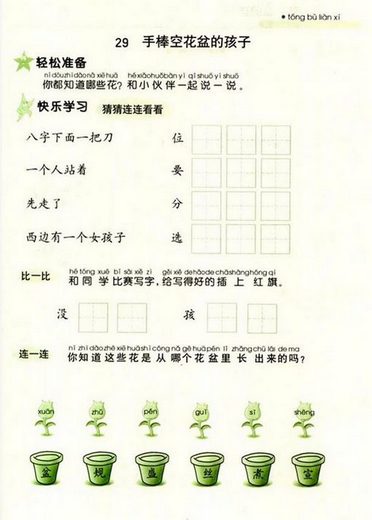 tóng bù liàn xí
29 手捧空花盆的孩子
轻松准备
nǐ dōu zhī dào nǎ xiē huā hé xiǎo huǒ bàn yì qǐ shuō yi shuō
你都知道哪些花?和小伙伴一起说一说。
快乐学习 猜猜连连看看
八字下面一把刀 位
一个人站着 要
先走了 分
西边有一个女孩子 选
hé tóng xué bǐ sài xiě zì gěi xiě de hǎo de chā shàng hóng qí
比一比 和同学比赛写字,给写得好的插上红旗。
没 孩
nǐ zhī dào zhè xiē huā shì cóng nǎ gè huā pén lǐ zhǎng chū lái de ma
连一连 你知道这些花是从哪个花盆里长出来的吗?
xuān zhǔ pén guī sī shèng
盆 规 盛 丝 煮 宣